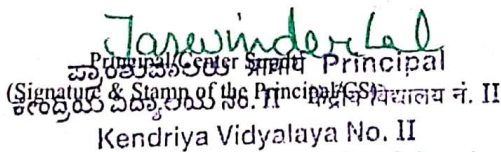 Jaswinder Lal
Principal/Center Supdt.
ಪ್ರಾಂಶುಪಾಲರು प्राचार्य Principal
(Signature & Stamp of the Principal/CS)
ಕೇಂದ್ರೀಯ ವಿದ್ಯಾಲಯ ನಂ. II केन्द्रीय विद्यालय नं. II
Kendriya Vidyalaya No. II